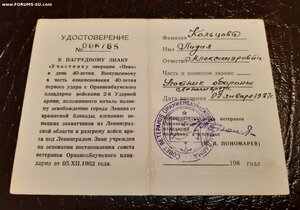 www.FORUMS-SU.com
УДОСТОВЕРЕНИЕ
№ 006/68
К НАГРУДНОМУ ЗНАКУ
«Участнику операции «Нева»
в день 40-летия. Выпущенному в
честь ознаменования 40-летия
первого удара с Ораниенбаумского
плацдарма войсками 2-й Ударной
армии, положившего начало полному
освобождению города Ленина от
вражеской блокады, изгнанию
немецких захватчиков из Ленинградской
области и разгрому войск врага
под Ленинградом. Знак учрежден
на основании постановления совета
ветеранов Ораниенбаумского плацдарма
от 05.XII.1982 года.
Фамилия Кольцова
Имя Лидия
Отчество Александровна
Часть и воинское звание
Участник обороны
Ленинграда
Дата вручения
27 января 1987г.
СОВЕТ ВЕТЕРАНОВ
ветеранов
(И. И. ПОНОМАРЕВ)
198 года